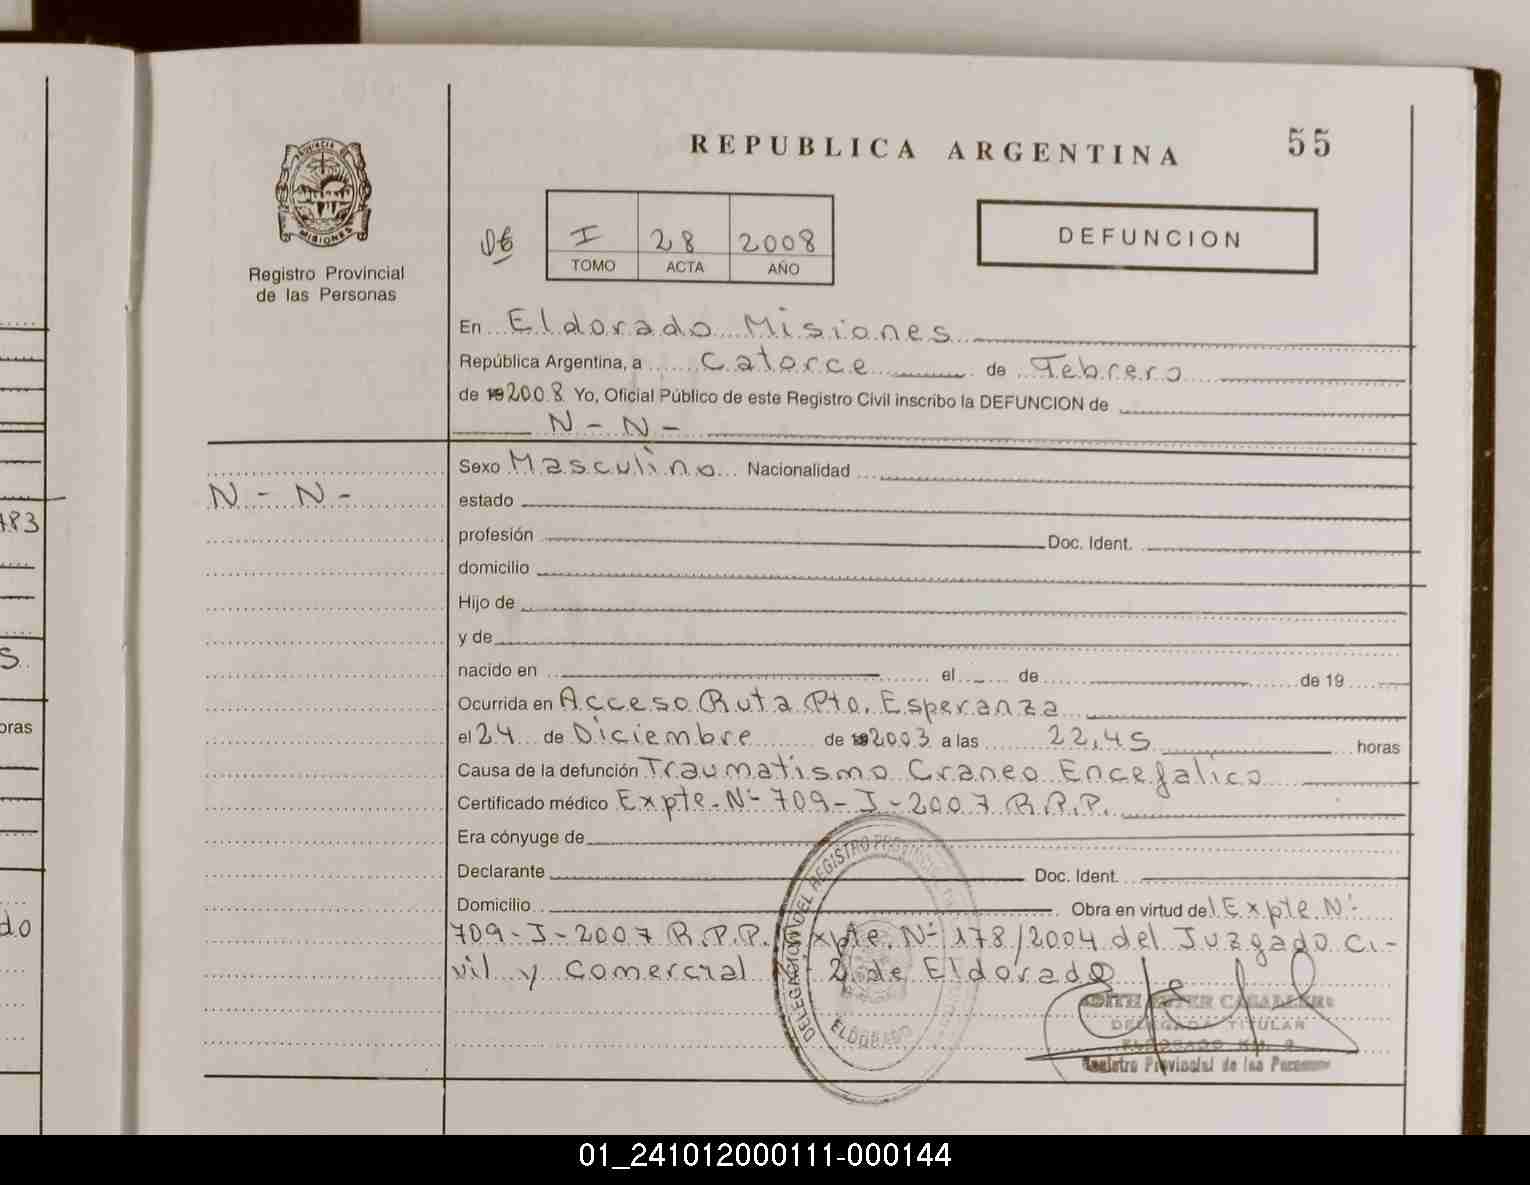 REPUBLICA ARGENTINA
55
PROVINCIA DE
MISIONES
Registro Provincial
de las Personas
I 28 2008
TOMO ACTA AÑO
DEFUNCION
En Eldorado Misiones
República Argentina, a Catorce de Febrero
de 2008 Yo, Oficial Público de este Registro Civil inscribo la DEFUNCION de
N - N -
Sexo Masculino Nacionalidad
N - N -
estado
profesión Doc. Ident.
domicilio
Hijo de
y de
nacido en el de de 19
Ocurrida en Acceso Ruta Pto. Esperanza
el 24 de Diciembre de 2003 a las 22,45 horas
Causa de la defunción Traumatismo Craneo Encefalico
Certificado médico Expte. Nº 709 - J - 2007 R.P.P.
Era cónyuge de
Declarante Doc. Ident.
Domicilio Obra en virtud del Expte. Nº
709 - J - 2007 R.P.P. Expte. Nº 178/2004 del Juzgado Ci-
vil y Comercial Nº 2 de Eldorado
DELEGACION DEL REGISTRO PROVINCIAL
ELDORADO
DELEGADA TITULAR
Registro Provincial de las Personas
183
S.
oras
do
01_241012000111-000144